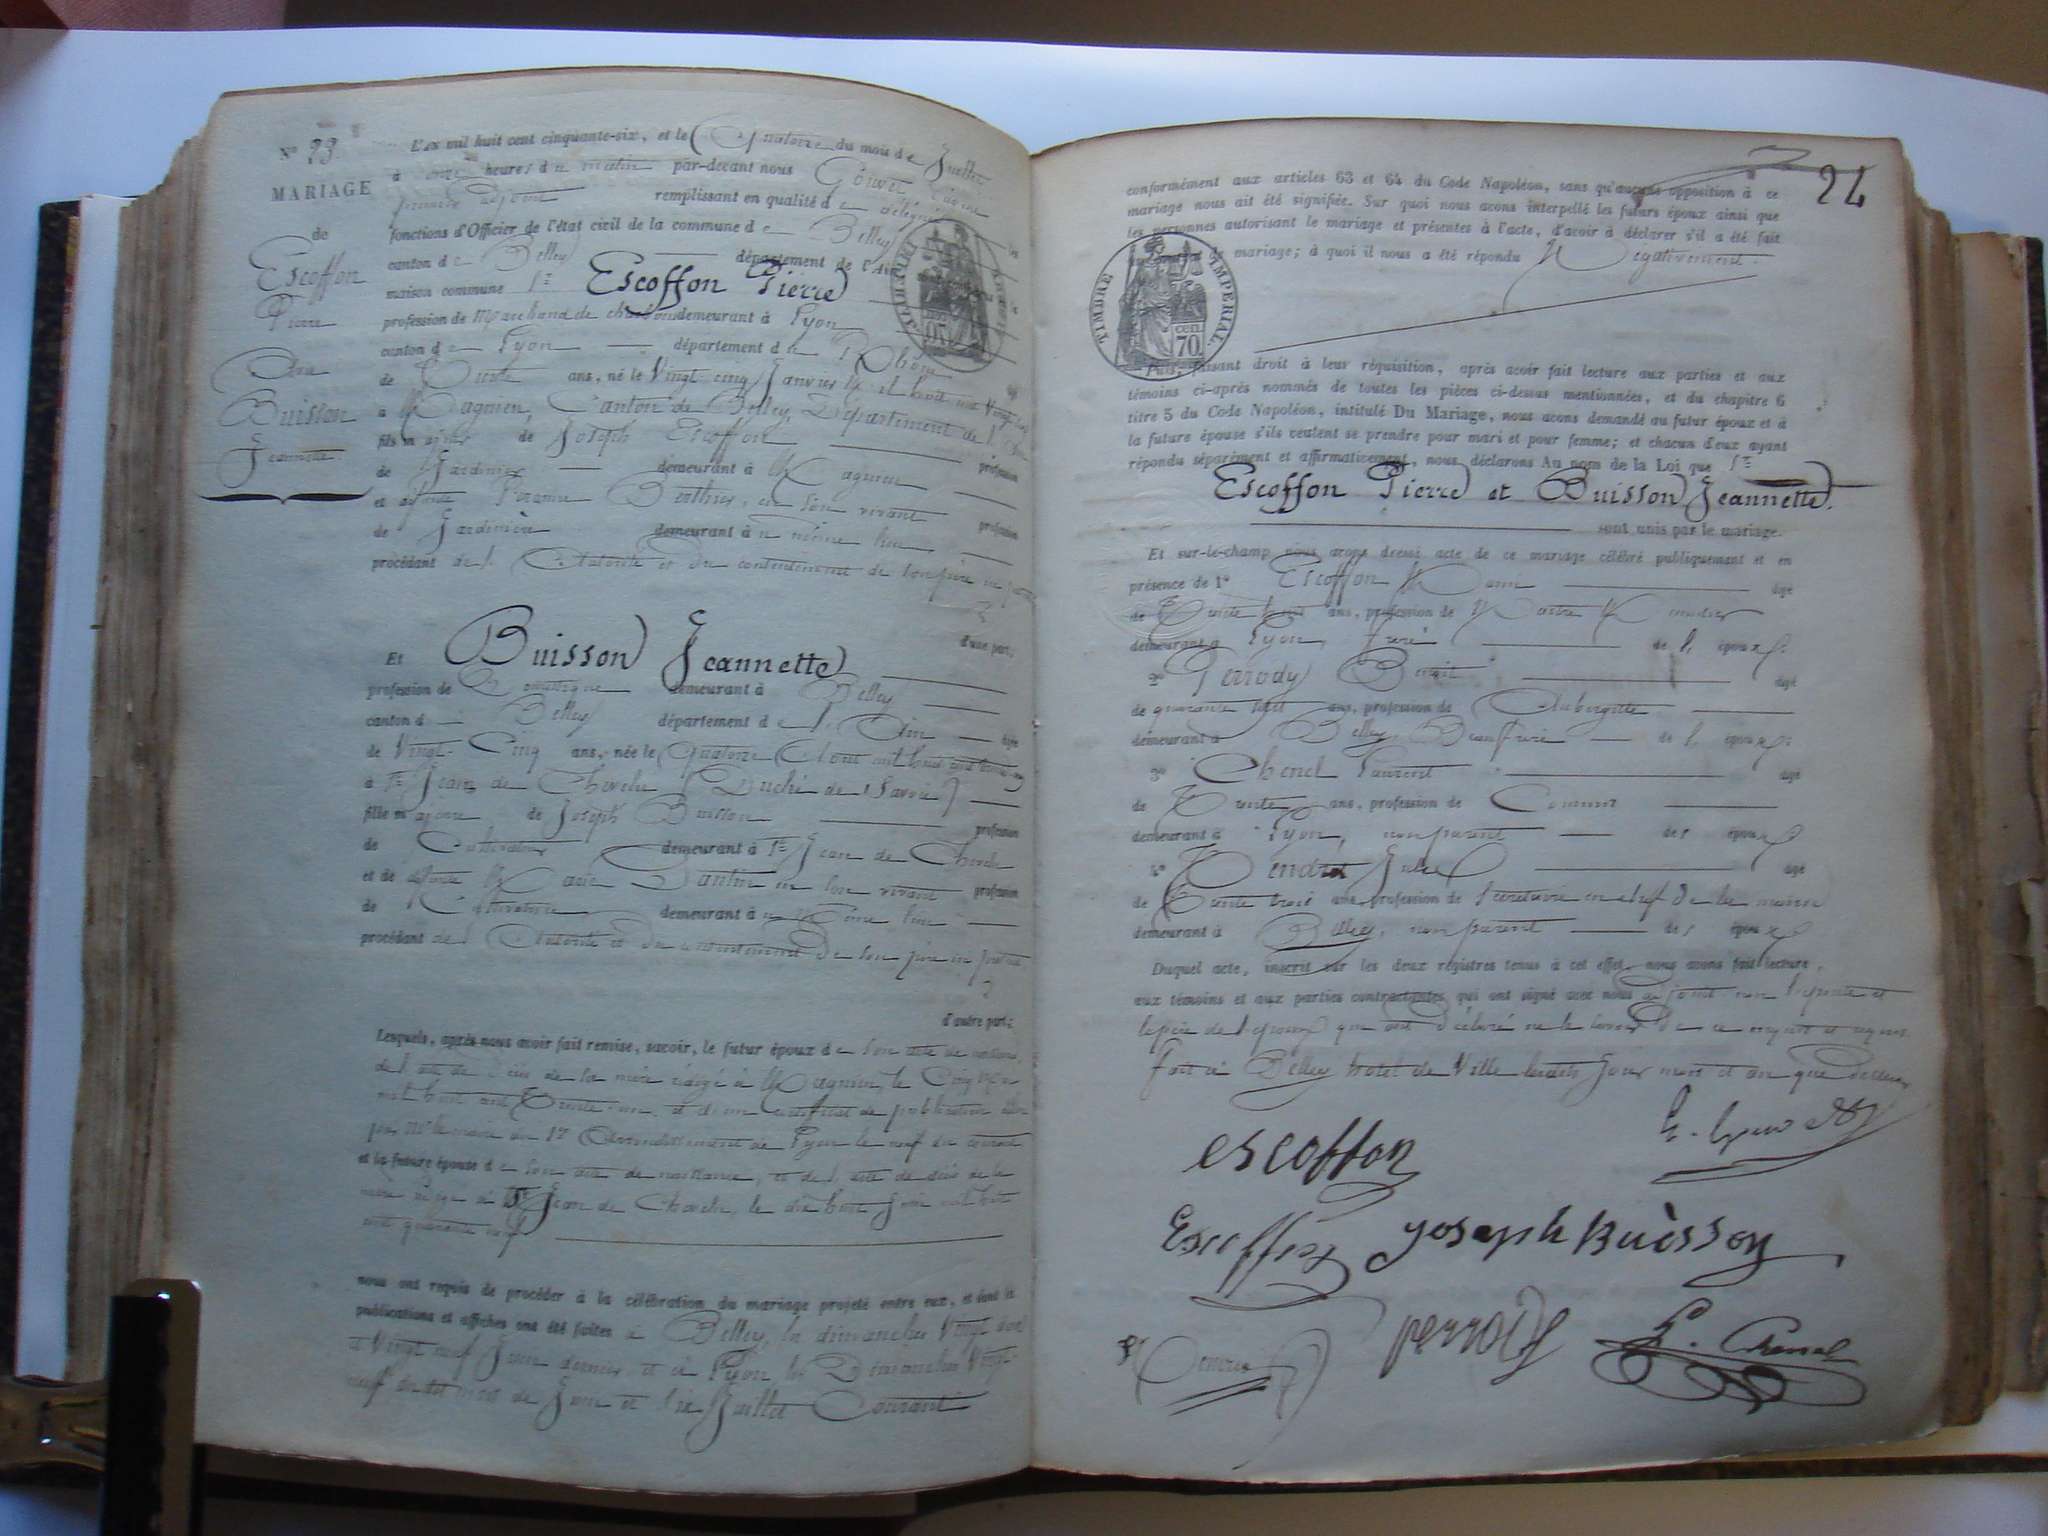 N° 23.
MARIAGE
de
Escoffon
Pierre
Avec
Buisson
Jeannette
L'an mil huit cent cinquante-six, et le Quatorze du mois de Juillet
à onze heures du matin par-devant nous
premier adjoint remplissant en qualité de délégué
fonctions d'Officier de l'état civil de la commune de Belley
canton de Belley département de l'Ain
maison commune Sr Escoffon Pierre
profession de Marchand de charbon demeurant à Lyon
canton de Lyon département du Rhône
de Trente ans, né le Vingt cinq Janvier mil huit cent Vingt six
à Magnieu, Canton de Belley, Département de l'Ain
fils majeur de Joseph Escoffon profession
de Jardinier demeurant à Magnieu
et de défunte Berthier, en son vivant profession
de Jardinière demeurant au même lieu
procédant de l'Autorité et du consentement de son père ici présent
d'une part;
Et Buisson Jeannette
profession de Domestique demeurant à Belley
canton de Belley département de l'Ain âgée
de Vingt-Cinq ans, née le Quatorze Août mil huit cent trente
à St Jean de Chevelu (Duché de Savoie)
fille majeure de Joseph Buisson profession
de Cultivateur demeurant à St Jean de Chevelu
et de défunte Marie Dantin en son vivant profession
de Cultivatrice demeurant au Même lieu
procédant de l'Autorité et du consentement de son père ici présent
d'autre part;
Lesquels, après nous avoir fait remise, savoir, le futur époux de son acte de naissance,
de l'acte de décès de sa mère rédigé à Magnieu, le Cinq
mil huit cent Trente-un et d'un certificat de publication délivré
par Mr le maire du 1er Arrondissement de Lyon le neuf du courant
et la future épouse de son acte de naissance, et de l'acte de décès de sa
mère rédigé à St Jean de Chevelu, le dix huit Juin mil huit
cent quarante neuf
nous ont requis de procéder à la célébration du mariage projeté entre eux, et dont les
publications et affiches ont été faites à Belley, les dimanches Vingt deux
et Vingt neuf Juin dernier et à Lyon les Dimanches Vingt-
neuf dudit mois de Juin et Six Juillet Courant
24
conformément aux articles 63 et 64 du Code Napoléon, sans qu'aucune opposition à ce
mariage nous ait été signifiée. Sur quoi nous avons interpellé les futurs époux ainsi que
les personnes autorisant le mariage et présentes à l'acte, d'avoir à déclarer s'il a été fait
un contrat de mariage; à quoi il nous a été répondu Négativement.
TIMBRE IMPERIAL.
cen.
70.
Puis, faisant droit à leur réquisition, après avoir fait lecture aux parties et aux
témoins ci-après nommés de toutes les pièces ci-dessus mentionnées, et du chapitre 6
titre 5 du Code Napoléon, intitulé Du Mariage, nous avons demandé au futur époux et à
la future épouse s'ils veulent se prendre pour mari et pour femme; et chacun d'eux ayant
répondu séparément et affirmativement, nous déclarons Au nom de la Loi que Sr
Escoffon Pierre et Buisson Jeannette.
sont unis par le mariage.
Et sur-le-champ nous avons dressé acte de ce mariage célébré publiquement et en
présence de 1° Escoffon âgé
de Trente huit ans, profession de Maitre
demeurant à Lyon, frère de l'époux;
2° Perrody Benoit âgé
de quarante huit ans, profession de Aubergiste
demeurant à Belley, Beaufrère de l'époux;
3° Chenel Laurent âgé
de Trente ans, profession de Commis
demeurant à Lyon, non parent des époux
4° Jules âgé
de Trente trois ans, profession de Secrétaire en chef de la mairie
demeurant à Belley, non parent des époux
Duquel acte, inscrit sur les deux registres tenus à cet effet, nous avons fait lecture
aux témoins et aux parties contractantes qui ont signé avec nous adjoint, non l'épouse et
le père de l'époux qui ont déclaré ne le savoir de ce enquis et requis.
Fait à Belley hôtel de Ville lesdits jour mois et an que dessus
escoffon
Escoffon
Joseph Buisson
perrody
L. Chenel